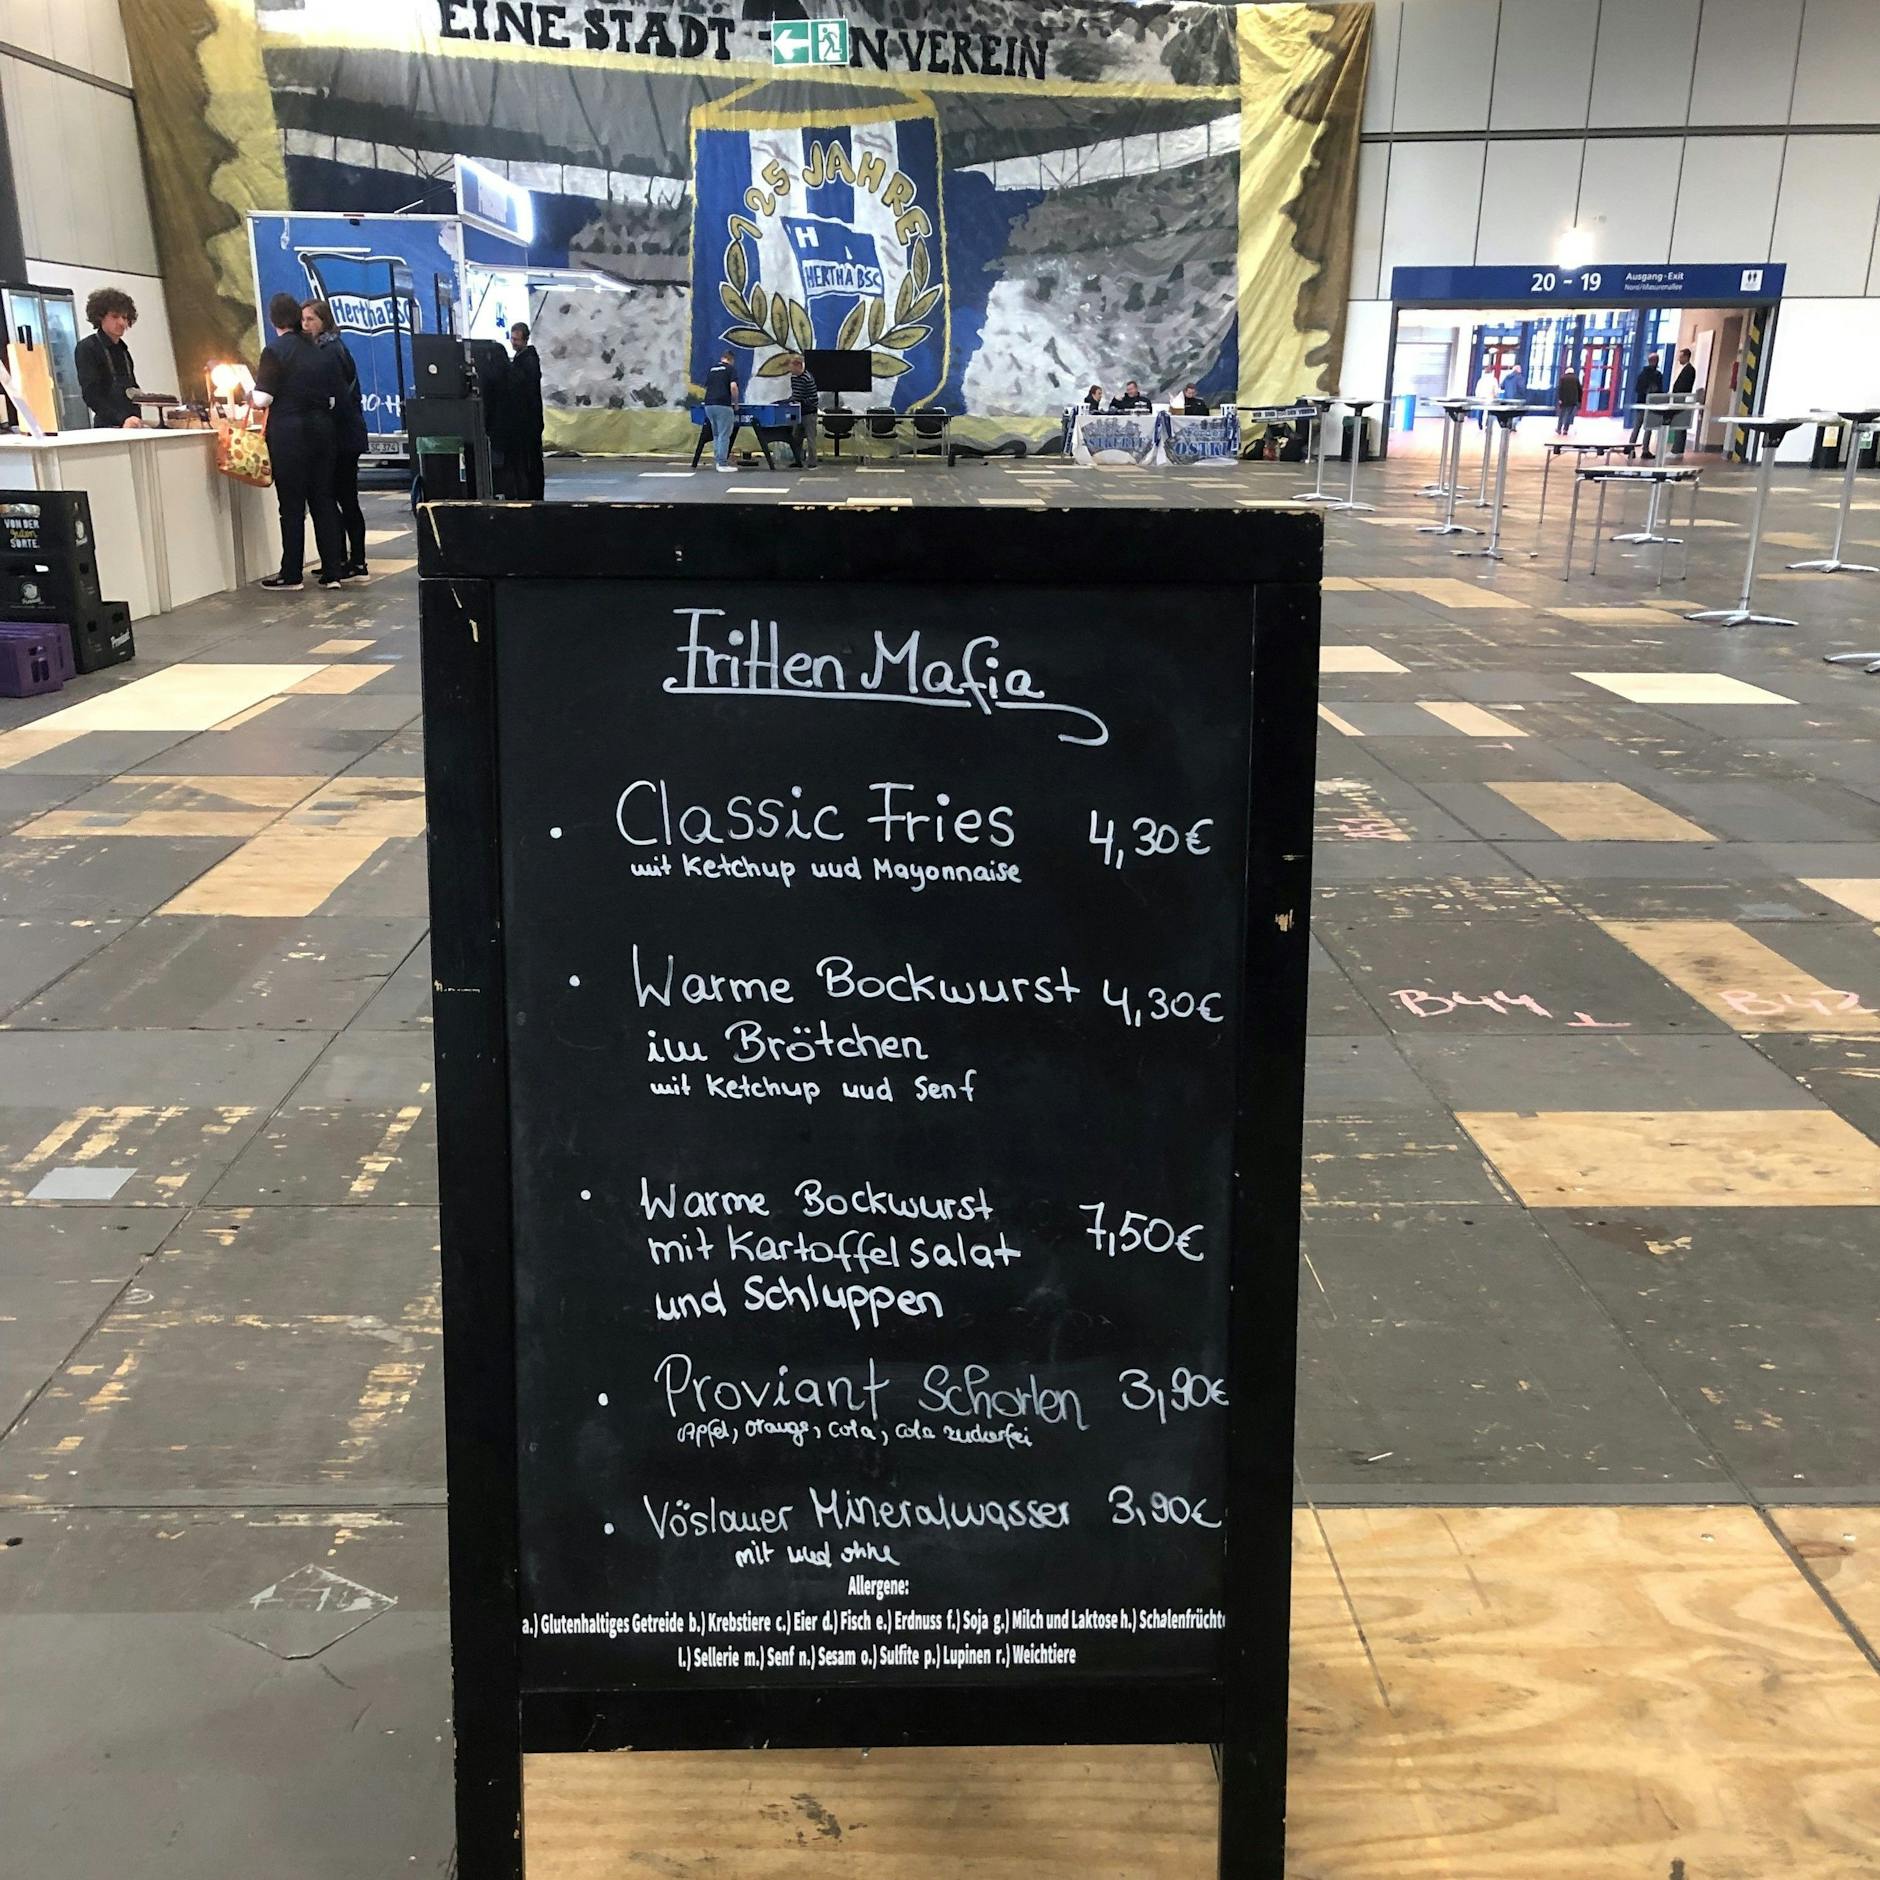 EINE STADT - EIN VEREIN
125 JAHRE
H
HERTHA BSC
Hertha BSC
20 - 19
Ausgang·Exit
Nord/Masurenallee
VON DER
guten
SORTE.
Proviant
OSTKURVE
Fritten Mafia
• Classic Fries 4,30€
mit Ketchup und Mayonnaise
• Warme Bockwurst 4,30€
im Brötchen
mit Ketchup und Senf
• Warme Bockwurst
mit Kartoffelsalat 7,50€
und Schluppen
• Proviant Schorlen 3,90€
Apfel, Orange, Cola, Cola zuckerfei
• Vöslauer Mineralwasser 3,90€
mit und ohne
Allergene:
a.) Glutenhaltiges Getreide b.) Krebstiere c.) Eier d.) Fisch e.) Erdnuss f.) Soja g.) Milch und Laktose h.) Schalenfrüchte
l.) Sellerie m.) Senf n.) Sesam o.) Sulfite p.) Lupinen r.) Weichtiere
B44
B42